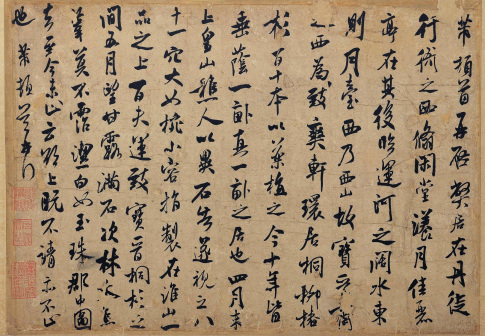 芾頓首再啓弊居在丹徒
行衙之西翛閑堂漾月佳麗
亭在其後臨運河之闊水東
則月臺西乃西山故寶晉齋
之西爲致爽軒環居桐柳椿
杉百十本以藥植之今十年皆
垂蔭一畝真一畝之居也四月末
上皇山樵人以異石告遂視之八
十一穴大如椀小容指製在淮山一
品之上百夫運致寶晉桐杉之
間五月望甘露滿石次林木焦
葦莫不霑潔白如玉珠郡山圖
去至今未止云欲上既不請亦不止
也芾頓首再拜